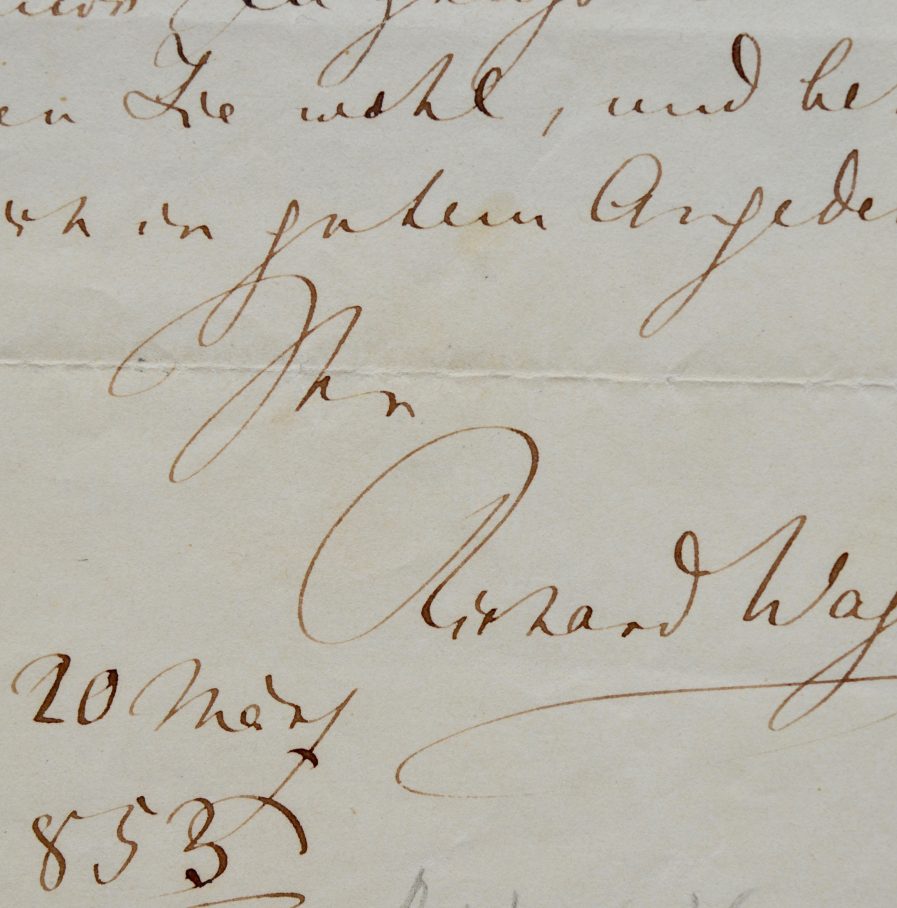 en Sie wohl, und be
ich in gutem Angede
Ihr
Richard Wag
20 März
853